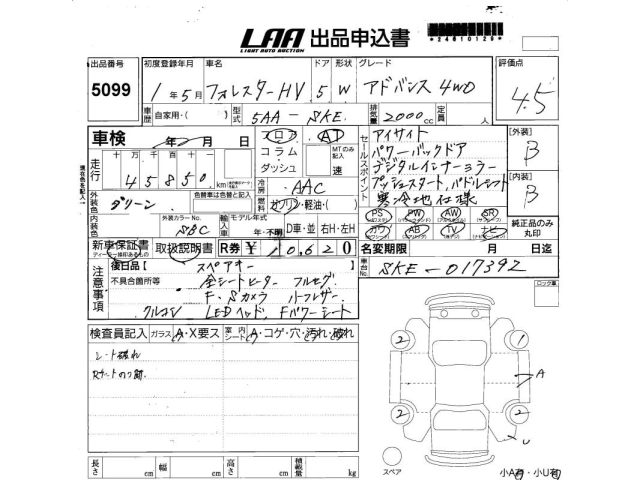 LAA 出品申込書
LIGHT AUTO AUCTION
*24610129*
出品番号 5099
初度登録年月 1年5月
車名 フォレスターHV
ドア 5
形状 W
グレード アドバンス 4WD
評価点 4.5
車歴 自家用・( )
型式 5AA-SKE
排気量 2000cc
定員 人
車検 年 月 日
フロア AT
コラム
ダッシュ
MTのみ記入 速
セールスポイント
アイサイト
パワーバックドア
デジタルインナーミラー
プッシュスタート、パドルシフト
寒冷地仕様
【外装】 B
【内装】 B
走行 十万千百十
45850 km
冷房 AAC
外装色 グリーン
色替車は色替と記入
燃料 ガソリン・軽油・( )
PS PW AW SR
カワ AB TV ナビ
純正品のみ丸印
内装色
外装カラーNo. SBC
輸入車 モデル年式 年・不明
D車・並 右H・左H
新車保証書 取扱説明書
R券 ¥10,620
名変期限 月 日迄
注意事項
後日品【 スペアキー
不具合箇所等 全シートヒーター フルセグ
F.Sカメラ ハーフレザー
クルコン LEDヘッド、Fパワーシート
車台No. SKE-017392
ロック車
検査員記入 ガラス A・X要ス 室内シート A・コゲ・穴・汚れ・破れ
シート破れ
2 1
A
2 2
U
長さ cm 幅 cm 高さ cm 積載量 kg
スペア
小A有・小U有